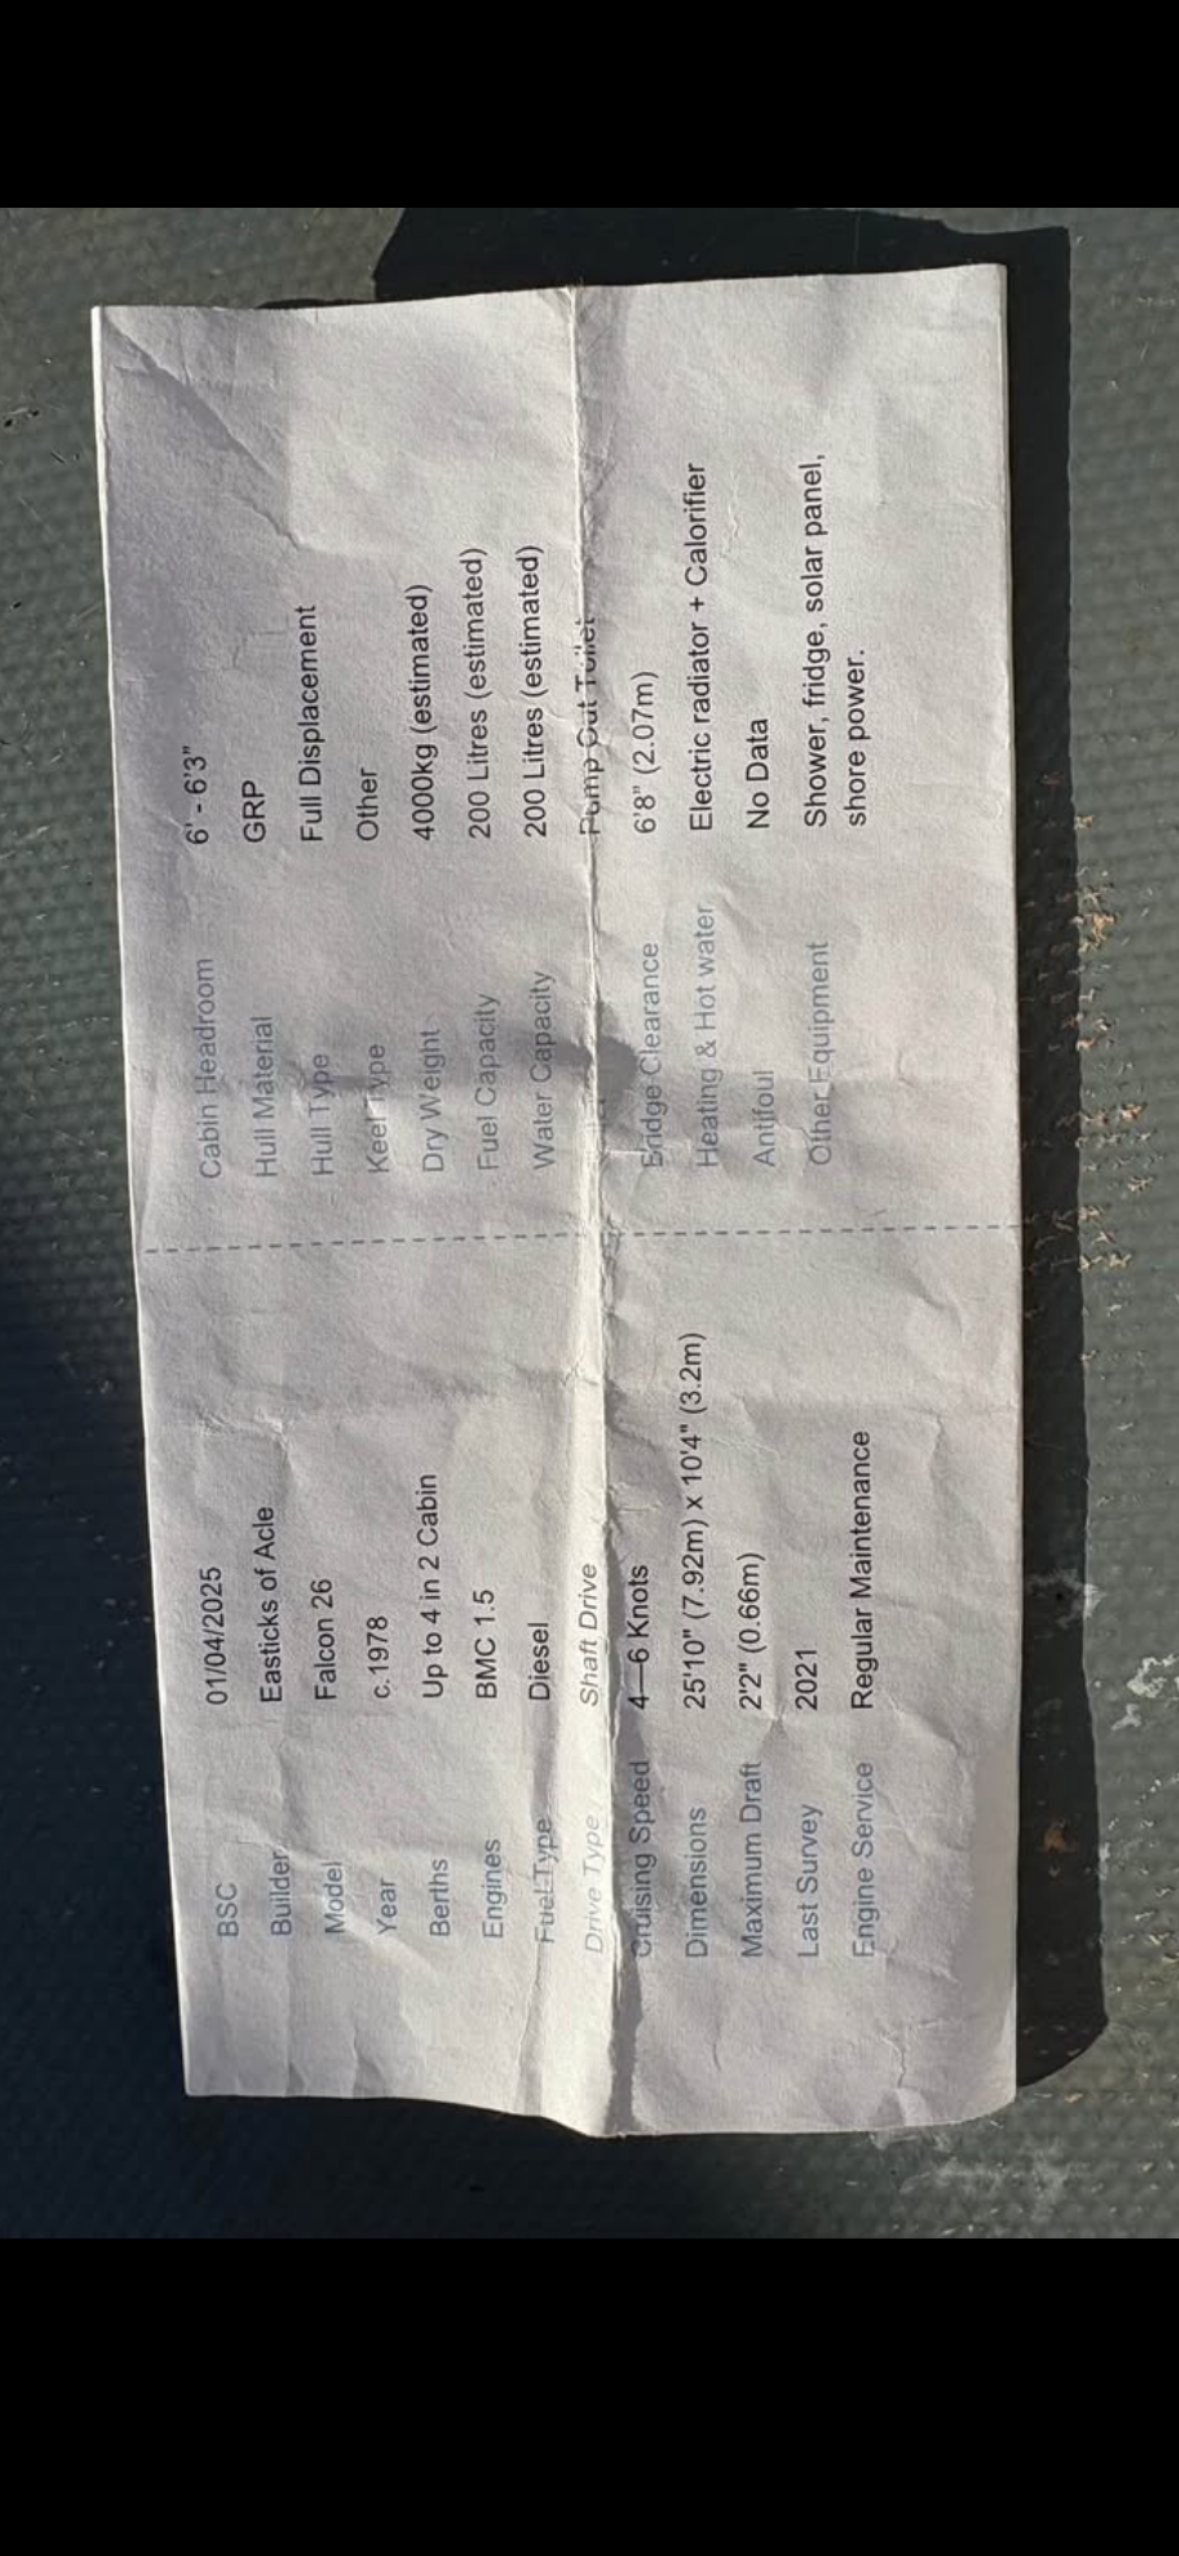 BSC 01/04/2025
Builder Easticks of Acle
Model Falcon 26
Year c.1978
Berths Up to 4 in 2 Cabin
Engines BMC 1.5
Fuel Type Diesel
Drive Type Shaft Drive
Cruising Speed 4—6 Knots
Dimensions 25'10" (7.92m) x 10'4" (3.2m)
Maximum Draft 2'2" (0.66m)
Last Survey 2021
Engine Service Regular Maintenance
Cabin Headroom 6' - 6'3"
Hull Material GRP
Hull Type Full Displacement
Keel Type Other
Dry Weight 4000kg (estimated)
Fuel Capacity 200 Litres (estimated)
Water Capacity 200 Litres (estimated)
Pump Out Toilet
Bridge Clearance 6'8" (2.07m)
Heating & Hot water Electric radiator + Calorifier
Antifoul No Data
Other Equipment Shower, fridge, solar panel,
shore power.